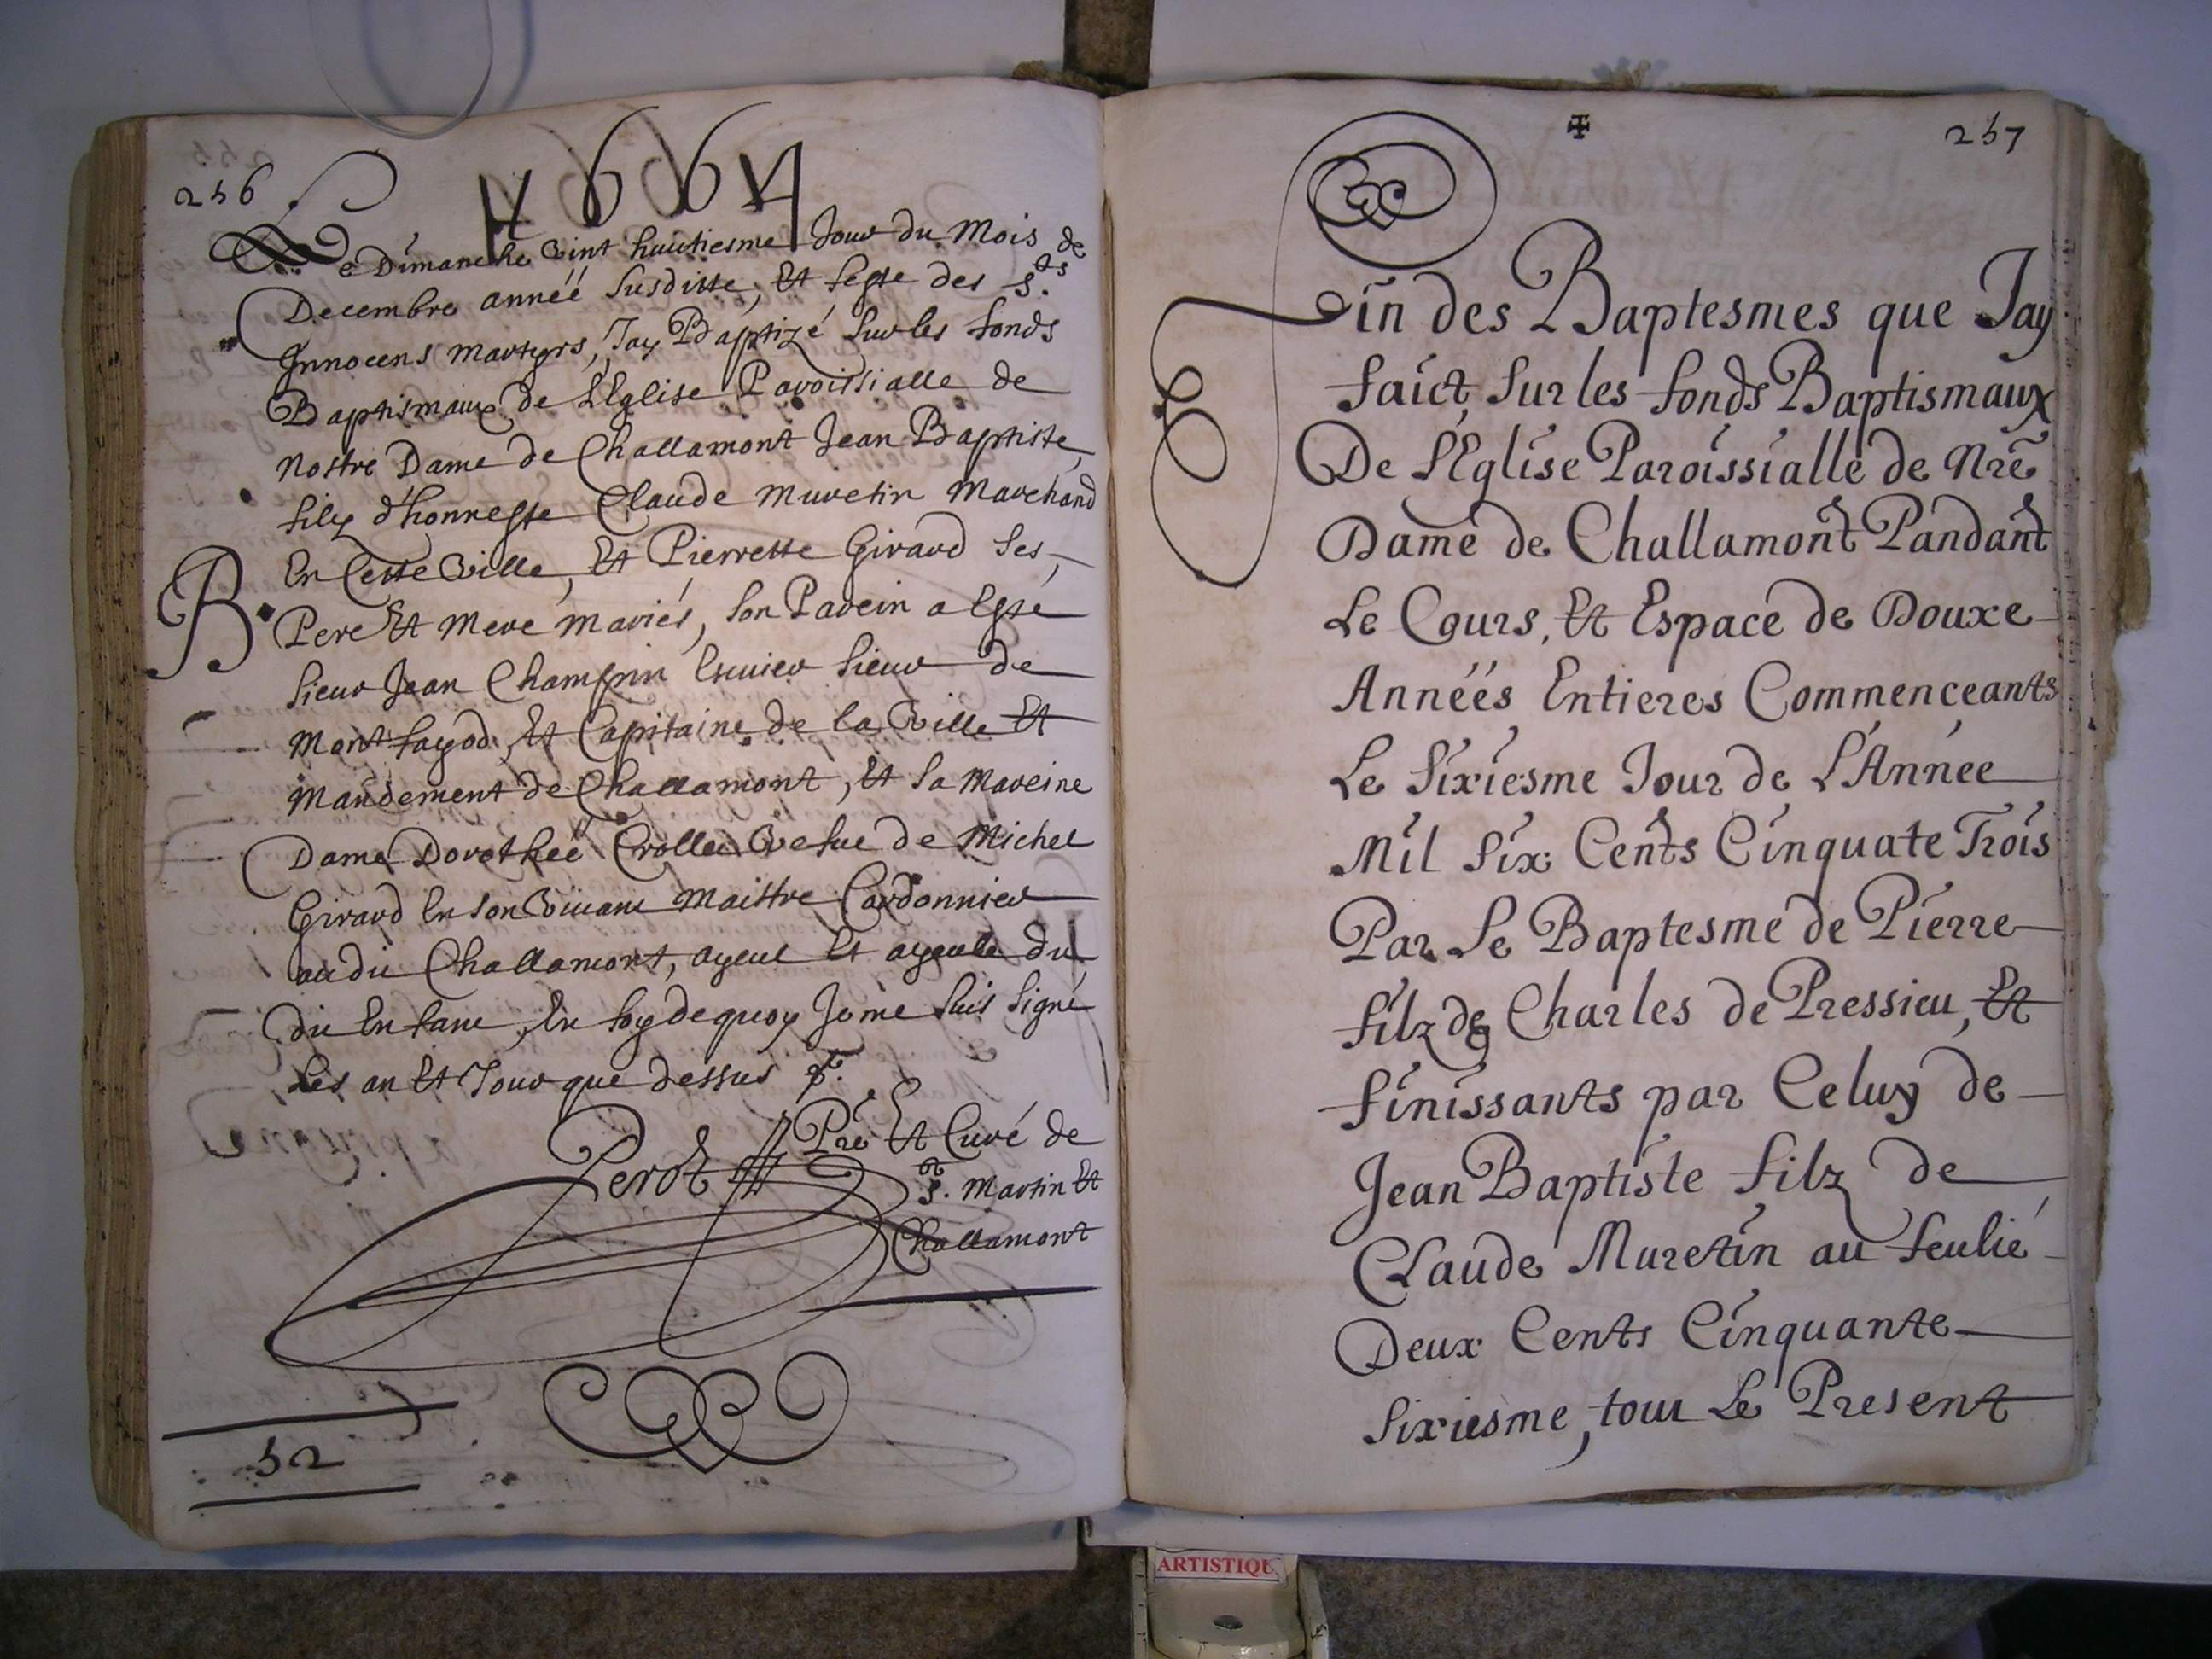 256
1664
Le Dimanche vint huitiesme Jour du Mois de
Decembre année susditte, Et feste des S.ts
Innocens martyrs, Jay Baptizé sur les fonds
Baptismaux de L'Eglise Paroissialle de
Nostre Dame de Challamont Jean Baptiste,
filz d'honneste Claude Muretin Marchand
En Cette ville, Et Pierrette Girard ses,
B. Pere Et Mere mariés, son Parein a Esté
sieur Jean Champin Escuier sieur de
Et Capitaine de la ville Et
Mandement de Challamont, Et sa Mareine
Dame Dorothéé vefue de Michel
Girard En son viuant Maistre Cordonnier
audit Challamont, ayeul Et ayeule du
dit Enfant, En foy de quoy Je me suis signé
Les an Et Jour que dessus
Perot Pre Et Curé de
S.t Martin Et
Challamont
52
257
Fin des Baptesmes que Jay
faict, sur les fonds Baptismaux
De L'Eglise Paroissialle de Nre
Dame de Challamont Pandant
Le Cours, Et Espace de Douze
Années Entieres Commenceants
Le sixiesme Jour de L'Année
Mil Six Cents Cinquate Trois
Par Le Baptesme de Pierre
filz de Charles de Pressieu, Et
finissants par Celuy de
Jean Baptiste filz de
Claude Muretin au feulié
Deux Cents Cinquante
sixiesme, tout Le Present
ARTISTIQU